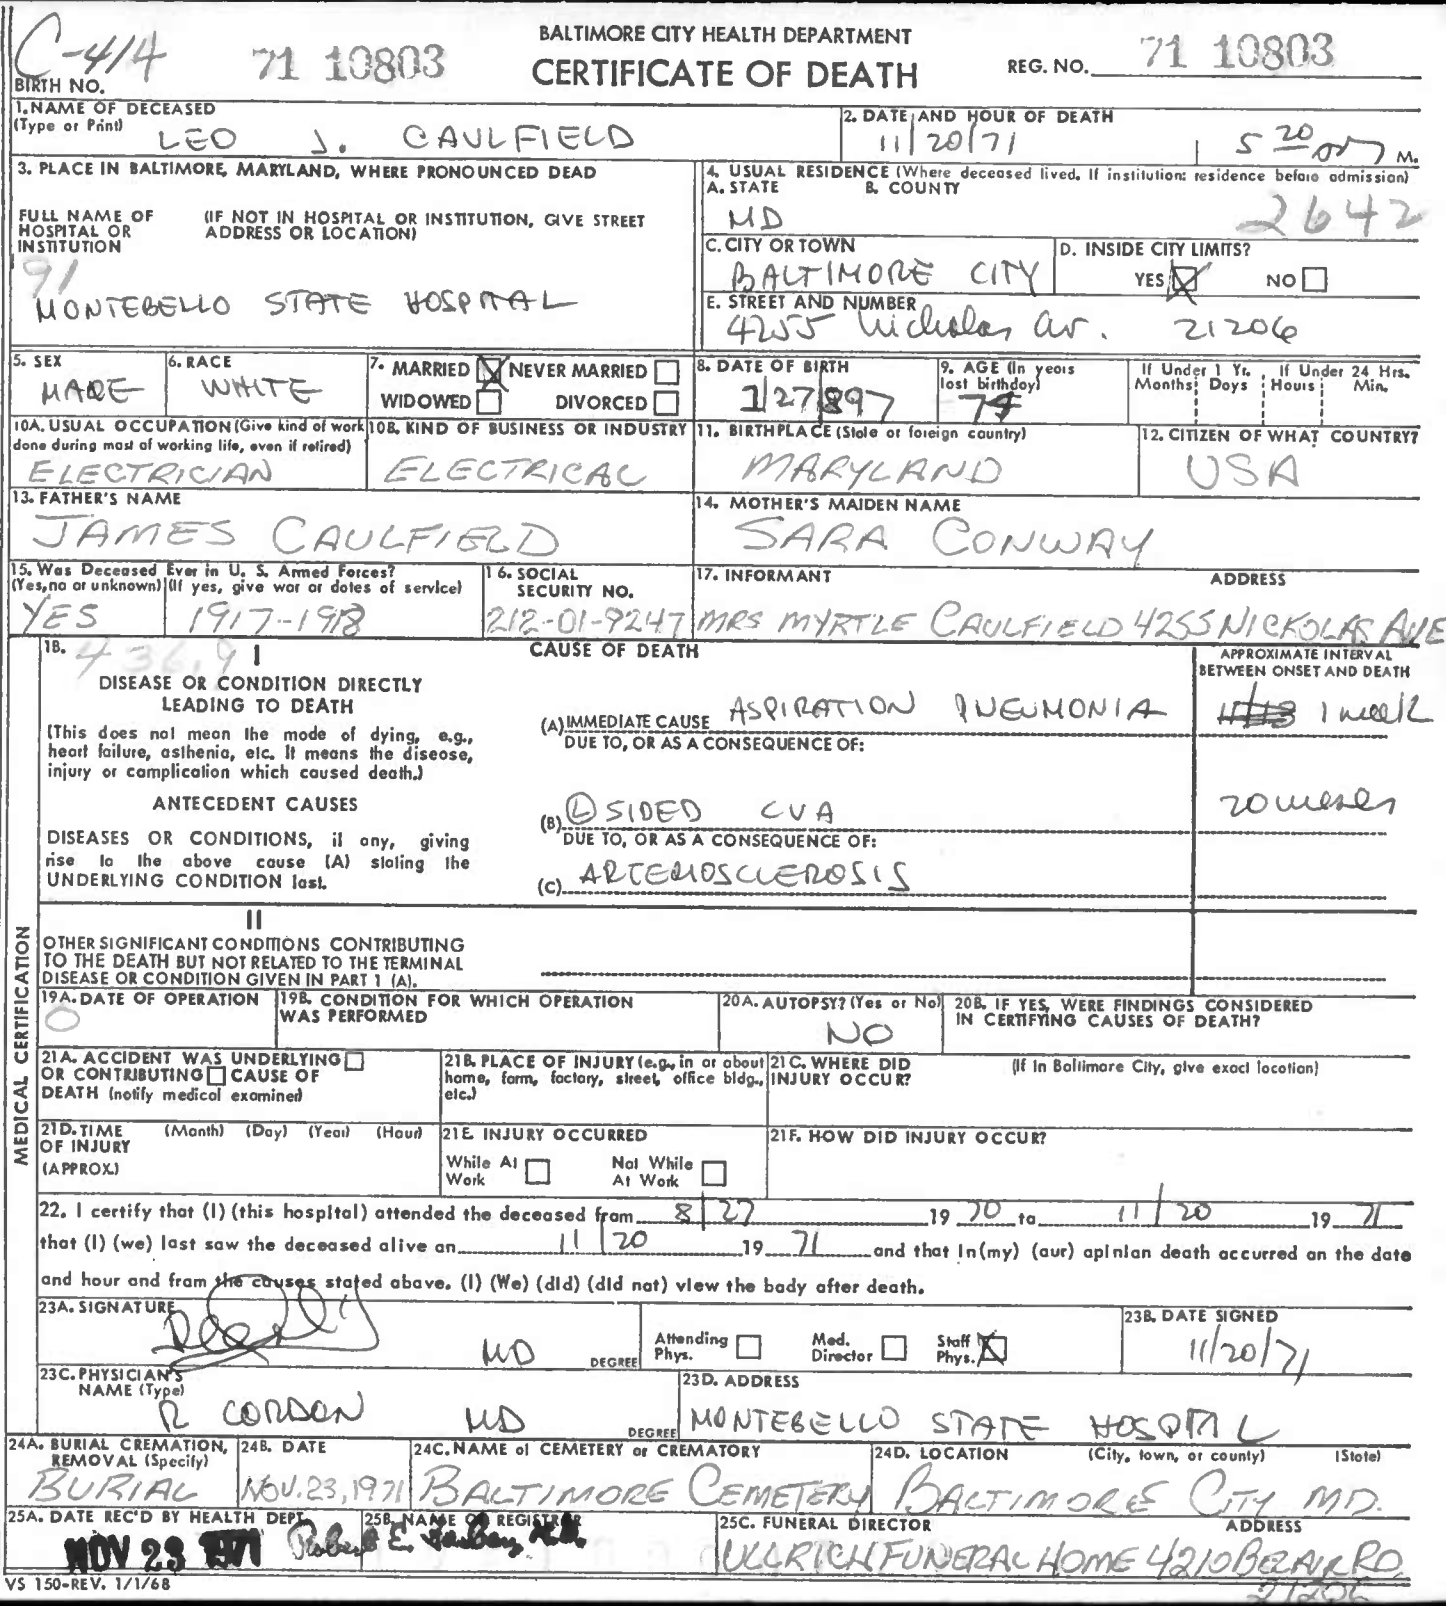 C-414
71 10803
BALTIMORE CITY HEALTH DEPARTMENT
CERTIFICATE OF DEATH
REG. NO. 71 10803
BIRTH NO.
1. NAME OF DECEASED
(Type or Print) LEO J. CAULFIELD
2. DATE AND HOUR OF DEATH
11/20/71 5 20 M.
3. PLACE IN BALTIMORE, MARYLAND, WHERE PRONOUNCED DEAD
FULL NAME OF HOSPITAL OR INSTITUTION
(IF NOT IN HOSPITAL OR INSTITUTION, GIVE STREET ADDRESS OR LOCATION)
91
MONTEBELLO STATE HOSPITAL
4. USUAL RESIDENCE (Where deceased lived. If institution: residence before admission)
A. STATE B. COUNTY
MD 2642
C. CITY OR TOWN
BALTIMORE CITY
D. INSIDE CITY LIMITS?
YES NO
E. STREET AND NUMBER
4255 Nicholas Av. 21206
5. SEX
MALE
6. RACE
WHITE
7. MARRIED NEVER MARRIED
WIDOWED DIVORCED
8. DATE OF BIRTH
1/27/897
9. AGE (In years last birthday)
74
If Under 1 Yr. Months Days
If Under 24 Hrs. Hours Min.
10A. USUAL OCCUPATION (Give kind of work done during most of working life, even if retired)
ELECTRICIAN
10B. KIND OF BUSINESS OR INDUSTRY
ELECTRICAL
11. BIRTHPLACE (State or foreign country)
MARYLAND
12. CITIZEN OF WHAT COUNTRY?
USA
13. FATHER'S NAME
JAMES CAULFIELD
14. MOTHER'S MAIDEN NAME
SARA CONWAY
15. Was Deceased Ever in U. S. Armed Forces?
(Yes, no or unknown) (If yes, give war or dates of service)
YES 1917-1918
16. SOCIAL SECURITY NO.
212-01-9247
17. INFORMANT ADDRESS
MRS MYRTLE CAULFIELD 4255 NICKOLAS AVE
18. 436.9 I
CAUSE OF DEATH
APPROXIMATE INTERVAL BETWEEN ONSET AND DEATH
DISEASE OR CONDITION DIRECTLY
LEADING TO DEATH
(This does not mean the mode of dying, e.g.,
heart failure, asthenia, etc. It means the disease,
injury or complication which caused death.)
(A) IMMEDIATE CAUSE ASPIRATION PNEUMONIA 1 week
DUE TO, OR AS A CONSEQUENCE OF:
ANTECEDENT CAUSES
DISEASES OR CONDITIONS, if any, giving
rise to the above cause (A) stating the
UNDERLYING CONDITION last.
(B) L SIDED CVA 20
DUE TO, OR AS A CONSEQUENCE OF:
(C) ARTERIOSCLEROSIS
II
OTHER SIGNIFICANT CONDITIONS CONTRIBUTING
TO THE DEATH BUT NOT RELATED TO THE TERMINAL
DISEASE OR CONDITION GIVEN IN PART 1 (A).
MEDICAL CERTIFICATION
19A. DATE OF OPERATION
0
19B. CONDITION FOR WHICH OPERATION WAS PERFORMED
20A. AUTOPSY? (Yes or No)
NO
20B. IF YES, WERE FINDINGS CONSIDERED IN CERTIFYING CAUSES OF DEATH?
21A. ACCIDENT WAS UNDERLYING
OR CONTRIBUTING CAUSE OF
DEATH (notify medical examiner)
21B. PLACE OF INJURY (e.g., in or about home, farm, factory, street, office bldg., etc.)
21C. WHERE DID INJURY OCCUR?
(If in Baltimore City, give exact location)
21D. TIME OF INJURY (APPROX.)
(Month) (Day) (Year) (Hour)
21E. INJURY OCCURRED
While At Work Not While At Work
21F. HOW DID INJURY OCCUR?
22. I certify that (I) (this hospital) attended the deceased from 8/27 19 70 to 11/20 19 71
that (I) (we) last saw the deceased alive on 11/20 19 71 and that in (my) (our) opinion death occurred on the date
and hour and from the causes stated above. (I) (We) (did) (did not) view the body after death.
23A. SIGNATURE
MD DEGREE
Attending Phys. Med. Director Staff Phys.
23B. DATE SIGNED
11/20/71
23C. PHYSICIAN'S NAME (Type)
R CORDON MD DEGREE
23D. ADDRESS
MONTEBELLO STATE HOSPITAL
24A. BURIAL CREMATION, REMOVAL (Specify)
BURIAL
24B. DATE
NOV. 23, 1971
24C. NAME of CEMETERY or CREMATORY
BALTIMORE CEMETERY
24D. LOCATION (City, town, or county) (State)
BALTIMORE CITY MD.
25A. DATE REC'D BY HEALTH DEPT.
NOV 23 1971
25B. NAME OF REGISTRAR
Robert E. Farber, M.D.
25C. FUNERAL DIRECTOR ADDRESS
ULLRICH FUNERAL HOME 4210 BELAIR RD.
21206
VS 150-REV. 1/1/68